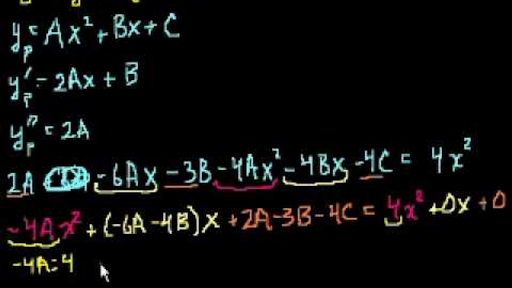 y_p = Ax² + Bx + C
y_p' = 2Ax + B
y_p'' = 2A
2A -6Ax -3B -4Ax² -4Bx -4C = 4x²
-4Ax² + (-6A -4B)x + 2A -3B -4C = 4x² + 0x + 0
-4A = 4